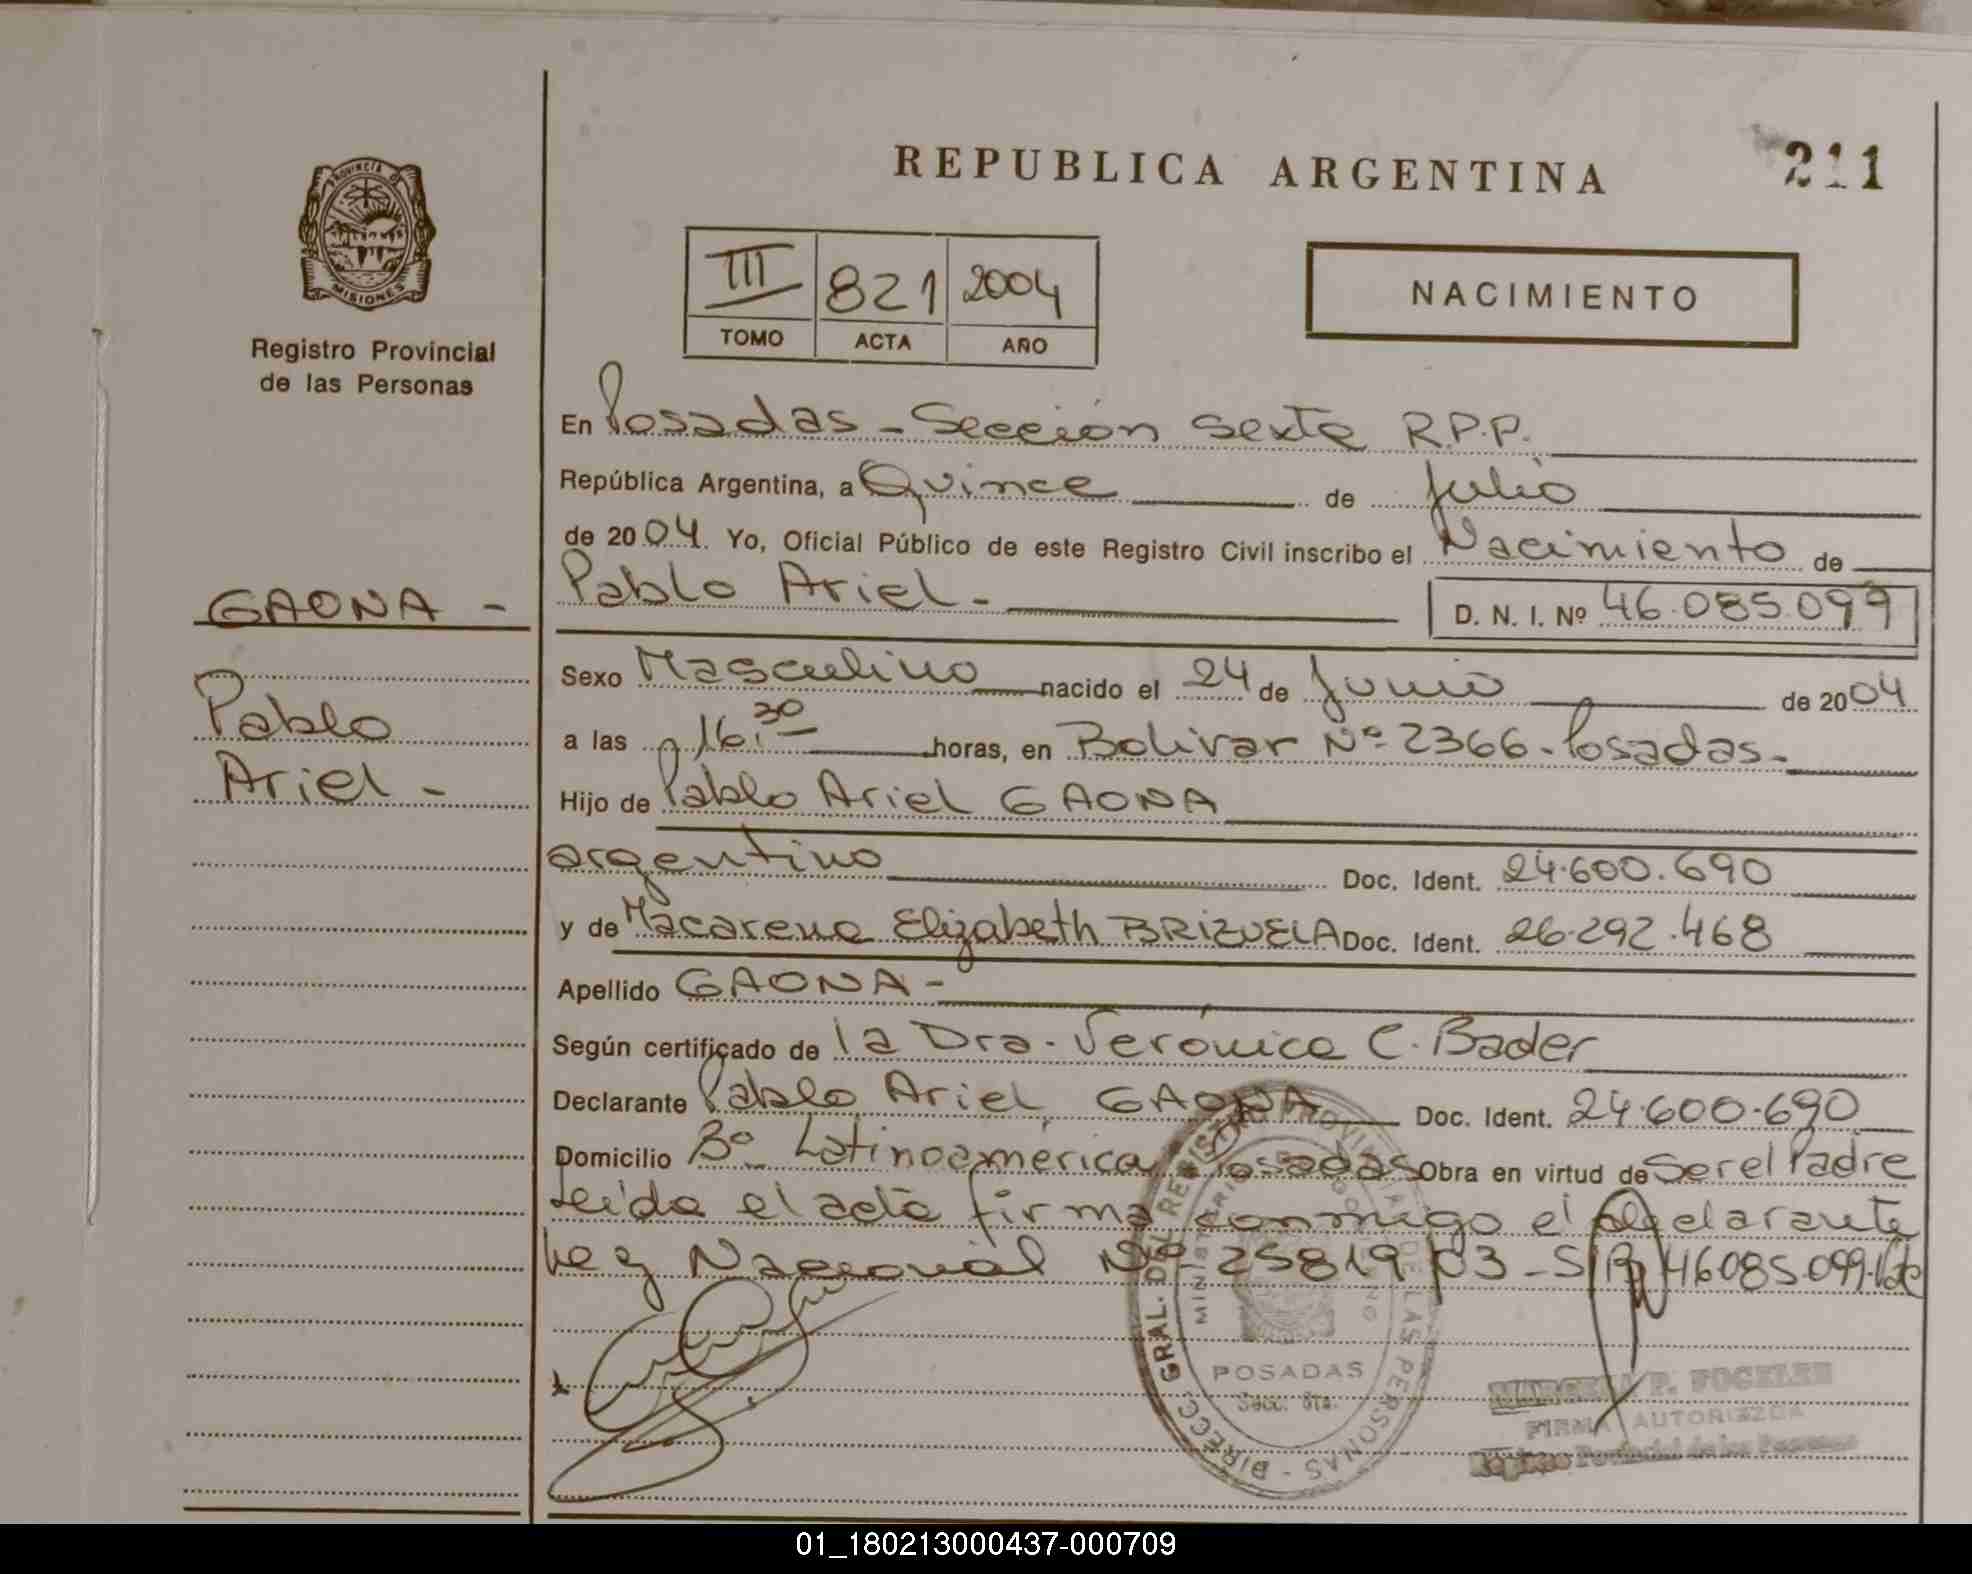 REPUBLICA ARGENTINA
211
PROVINCIA D
MISIONES
Registro Provincial
de las Personas
III 821 2004
TOMO ACTA AÑO
NACIMIENTO
En Posadas - Sección Sexta R.P.P.
República Argentina, a Quince de Julio
de 2004. Yo, Oficial Público de este Registro Civil inscribo el Nacimiento de
GAONA -
Pablo Ariel -
D. N. I. Nº 46.085.099
Pablo
Ariel -
Sexo Masculino nacido el 24 de Junio de 2004
a las 16:30 horas, en Bolivar Nº 2366 - Posadas -
Hijo de Pablo Ariel GAONA
argentino Doc. Ident. 24.600.690
y de Macarena Elizabeth BRIZUELA Doc. Ident. 26.292.468
Apellido GAONA -
Según certificado de la Dra. Verónica C. Bader
Declarante Pablo Ariel GAONA Doc. Ident. 24.600.690
Domicilio Bº Latinoamérica Posadas Obra en virtud de Ser el Padre
Leída el acta firma conmigo el declarante
Ley Nacional Nº 25819/03 - S/R 46085.099
DIRECC. GRAL. DEL REGISTRO PROVINCIAL DE LAS PERSONAS -
MINISTERIO DE GOBIERNO
POSADAS
Secc. 6ta.
MARCELA P.
FIRMA AUTORIZADA
Registro Provincial de las Personas
01_180213000437-000709